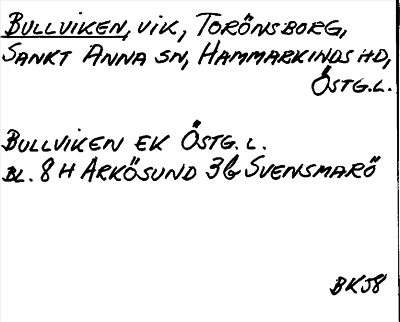 BULLVIKEN, VIK, TORÖNSBORG,
SANKT ANNA SN, HAMMARKINDS HD,
ÖSTG.L.
BULLVIKEN EK ÖSTG. L.
BL. 8 H ARKÖSUND 3b SVENSMARÖ
BKJ8